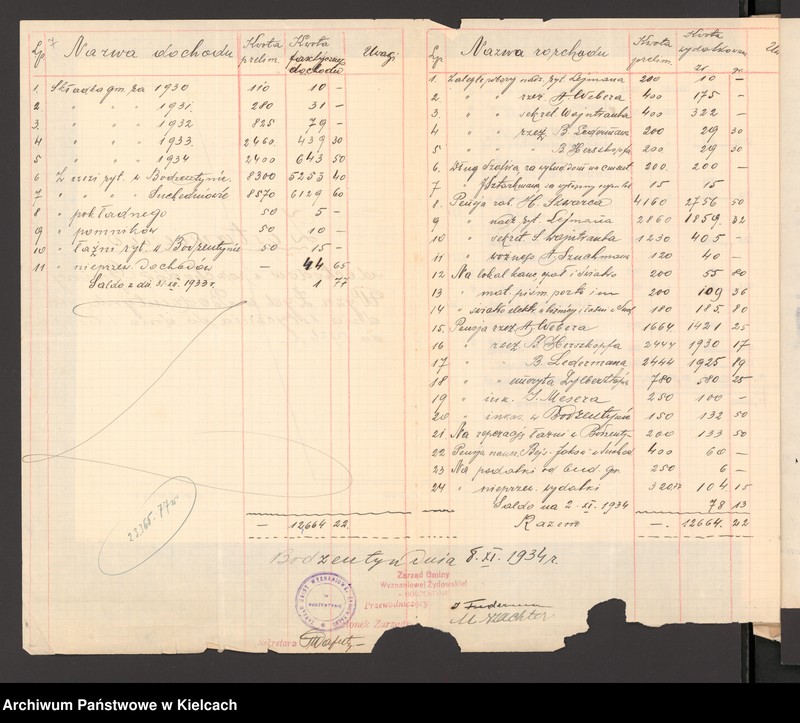 Lp. Nazwa dochodu Kwota prelim. Kwota faktyczn. dochodu Uwagi
1. Składka gm. za 1930 110 10 –
2 " " " 1931. 280 31 –
3. " " " 1932 825 79 –
4 " " " 1933. 2460. 439 30
5 " " " 1934 2400 643 50
6 Z rzezi ryt. w Bodzentynie. 8300 5253 40
7 " " " Suchedniowie 8570 6129 60
8 " pokładnego 50 5 –
9 " pomników 50 10 –
10 " łaźni ryt. w Bodzentynie 50 15 –
11 " nieprzew. dochodów – 44 65
Saldo z dn. 31.XII.1933 r. 1 77
– 12,664 22
23365.77
Lp. Nazwa rozchodu Kwota prelim. Kwota wydatkowan. zł. gr.
1. Zaległe pobory nadz. ryt. Lejmana 200 10 –
2 " " rzez. A. Webera 400 175 –
3. " " sekret Wajntrauba 400 322 –
4 " " rzez. B. Ledermana 200 29 30
5 " " B. Herszkopfa 200 29 30
6. Dług 200. 200 –
7 15 15
8. Pensja rab. H. Szwarca 4160 2756 50
9 " nadz. ryt. Lejmana 2860 1859. 32
10 " sekret S. Wajntrauba 1230 405 –
11 " woźnego A. Szuchmana 120 40 –
12 Na lokal kanc. opał i światło 200 55 80
13 " mat. piśm. porto i in 200 109 36
14 " światło elektr. w bóżnicy i łaźni w Such. 180 185. 80
15. Pensja rzez. A. Webera 1664 1421 25
16 " rzez. B. Herszkopfa 2444 1930 17
17 " " B. Ledermana 2444 1925 89
18 " " Zylbersztajn 780 580 25
19 " ink. J. Mesera 250 100 –
20 " inkas. w Bodzentynie 150 132 50
21 Na reperację łaźni w Bodzentyn. 200 133 50
22 Pensja naucz. w Suched 400 60 –
23 Na podatki od bud. gm. 250 6 –
24 " nieprzew. wydatki 104 15
Saldo na 2.XI.1934 78 13
Razem –. 12664. 22
Bodzentyn dnia 8.XI.1934 r.
Zarząd Gminy
Wyznaniowej Żydowskiej
BODZENTYN
Przewodniczący
Członek Zarządu
Sekretarz
Archiwum Państwowe w Kielcach